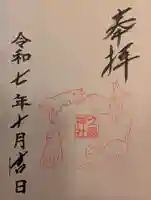 奉拝
令和七年十月吉日